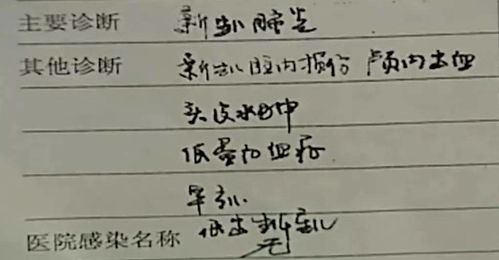 主要诊断 新生儿肺炎
其他诊断 新生儿脑内损伤 颅内出血
头皮水肿
低蛋白血症
早产儿
医院感染名称 低出生体重儿